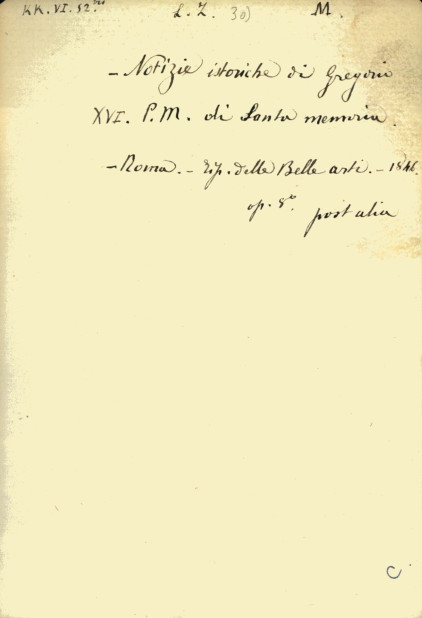 KK. VI. 52.
L. Z. 30) M.
- Notizie istoriche di Gregorio
XVI. P. M. di Santa memoria.
- Roma. - Tip. delle Belle arti. - 1846.
op. 8°.
post alia
C